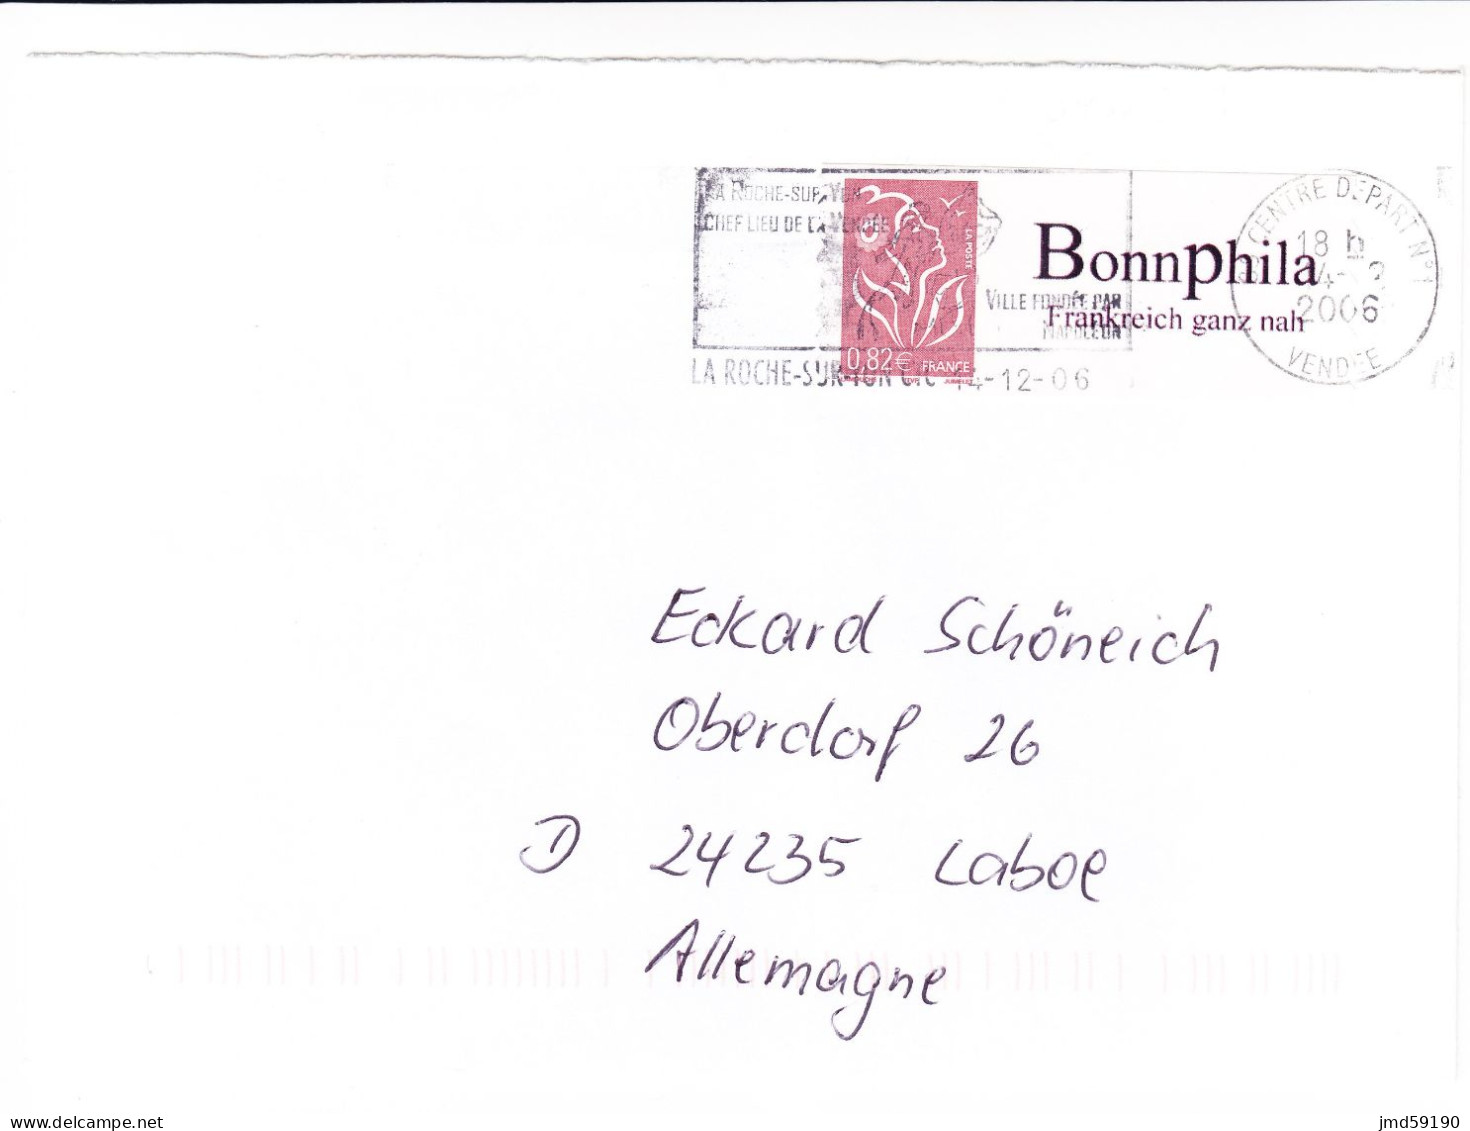 LA ROCHE-SUR-YON
CHEF LIEU DE LA VENDÉE
VILLE FONDÉE PAR
NAPOLEON
LA ROCHE-SUR-YON CTC 14-12-06
LA POSTE
0,82€ FRANCE
Bonnphila
Frankreich ganz nah
CENTRE DEPART N°1
18 h
2006
VENDEE
Eckard Schöneich
Oberdorf 26
D 24235 Laboe
Allemagne
delcampe.net
jmd59190